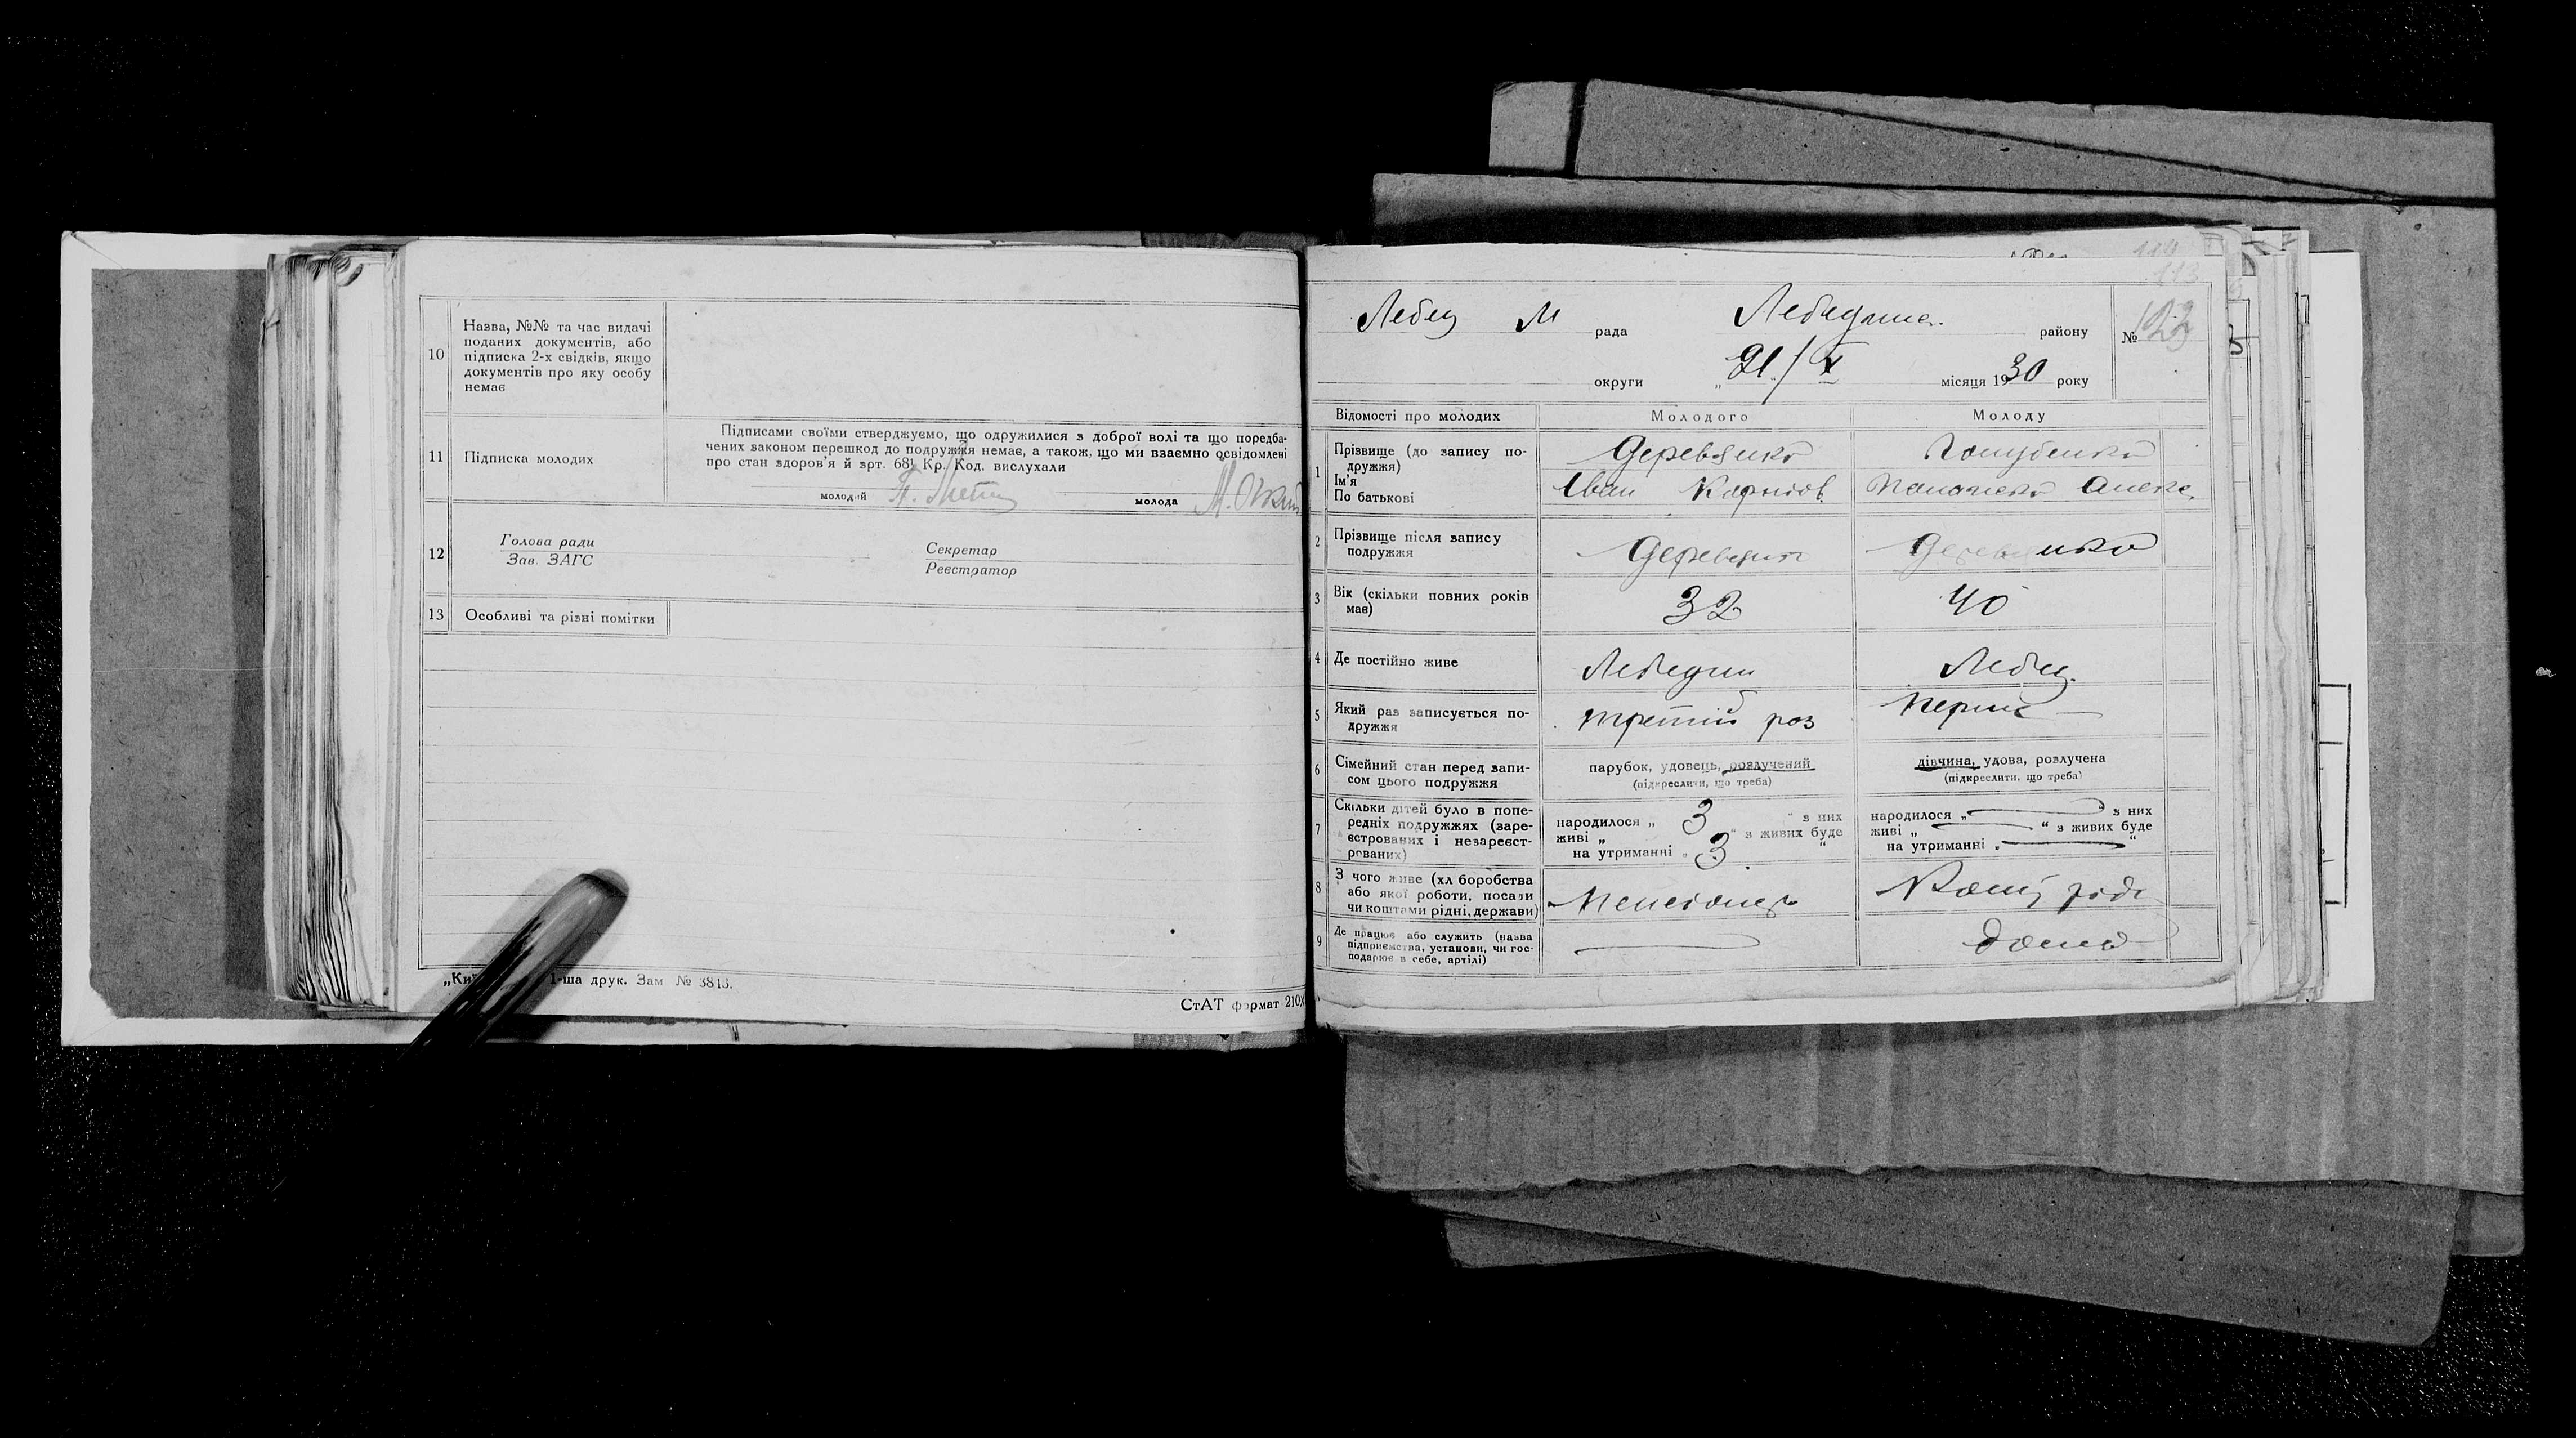 10
Назва, №№ та час видачі
поданих документів, або
підписка 2-х свідків, якщо
документів про яку особу
немає
11
Підписка молодих
Підписами своїми стверджуємо, що одружилися з доброї волі та що передба-
чених законом перешкод до подружжя немає, а також, що ми взаємно освідомлені
про стан здоров'я й арт. 681 Кр. Код. вислухали
молодий
молода
12
Голова ради
Зав. ЗАГС
Секретар
Реєстратор
13
Особливі та різні помітки
1-ша друк. Зам № 3813.
СтАТ формат 210
114
113
Лебед М рада Лебединс. району
№ 123
округи „21/X місяця 1930 року
Відомості про молодих Молодого Молоду
1 Прізвище (до запису по-
дружжя)
Ім'я
По батькові
Деревянко
Іван Карпов.
Голубенко
Олекс.
2 Прізвище після запису
подружжя
Деревянко Деревянко
3 Вік (скільки повних років
має)
32 40
4 Де постійно живе
Лебедин Лебед.
5 Який раз записується по-
дружжя
третій раз перший
6 Сімейний стан перед запи-
сом цього подружжя
парубок, удовець, розлучений
(підкреслити, що треба)
дівчина, удова, розлучена
(підкреслити, що треба)
7 Скільки дітей було в попе-
редніх подружжях (заре-
єстрованих і незареєст-
рованих)
народилося „ 3 “ з них
живі „ “ з живих буде
на утриманні „ 3 “
народилося „ “ з них
живі „ “ з живих буде
на утриманні „ “
8 З чого живе (хліборобства
або якої роботи, посади
чи коштами рідні, держави)
Пенсіонер
Кошт рідн
9 Де працює або служить (назва
підприємства, установи, чи гос-
подарює в себе, артілі)
дома